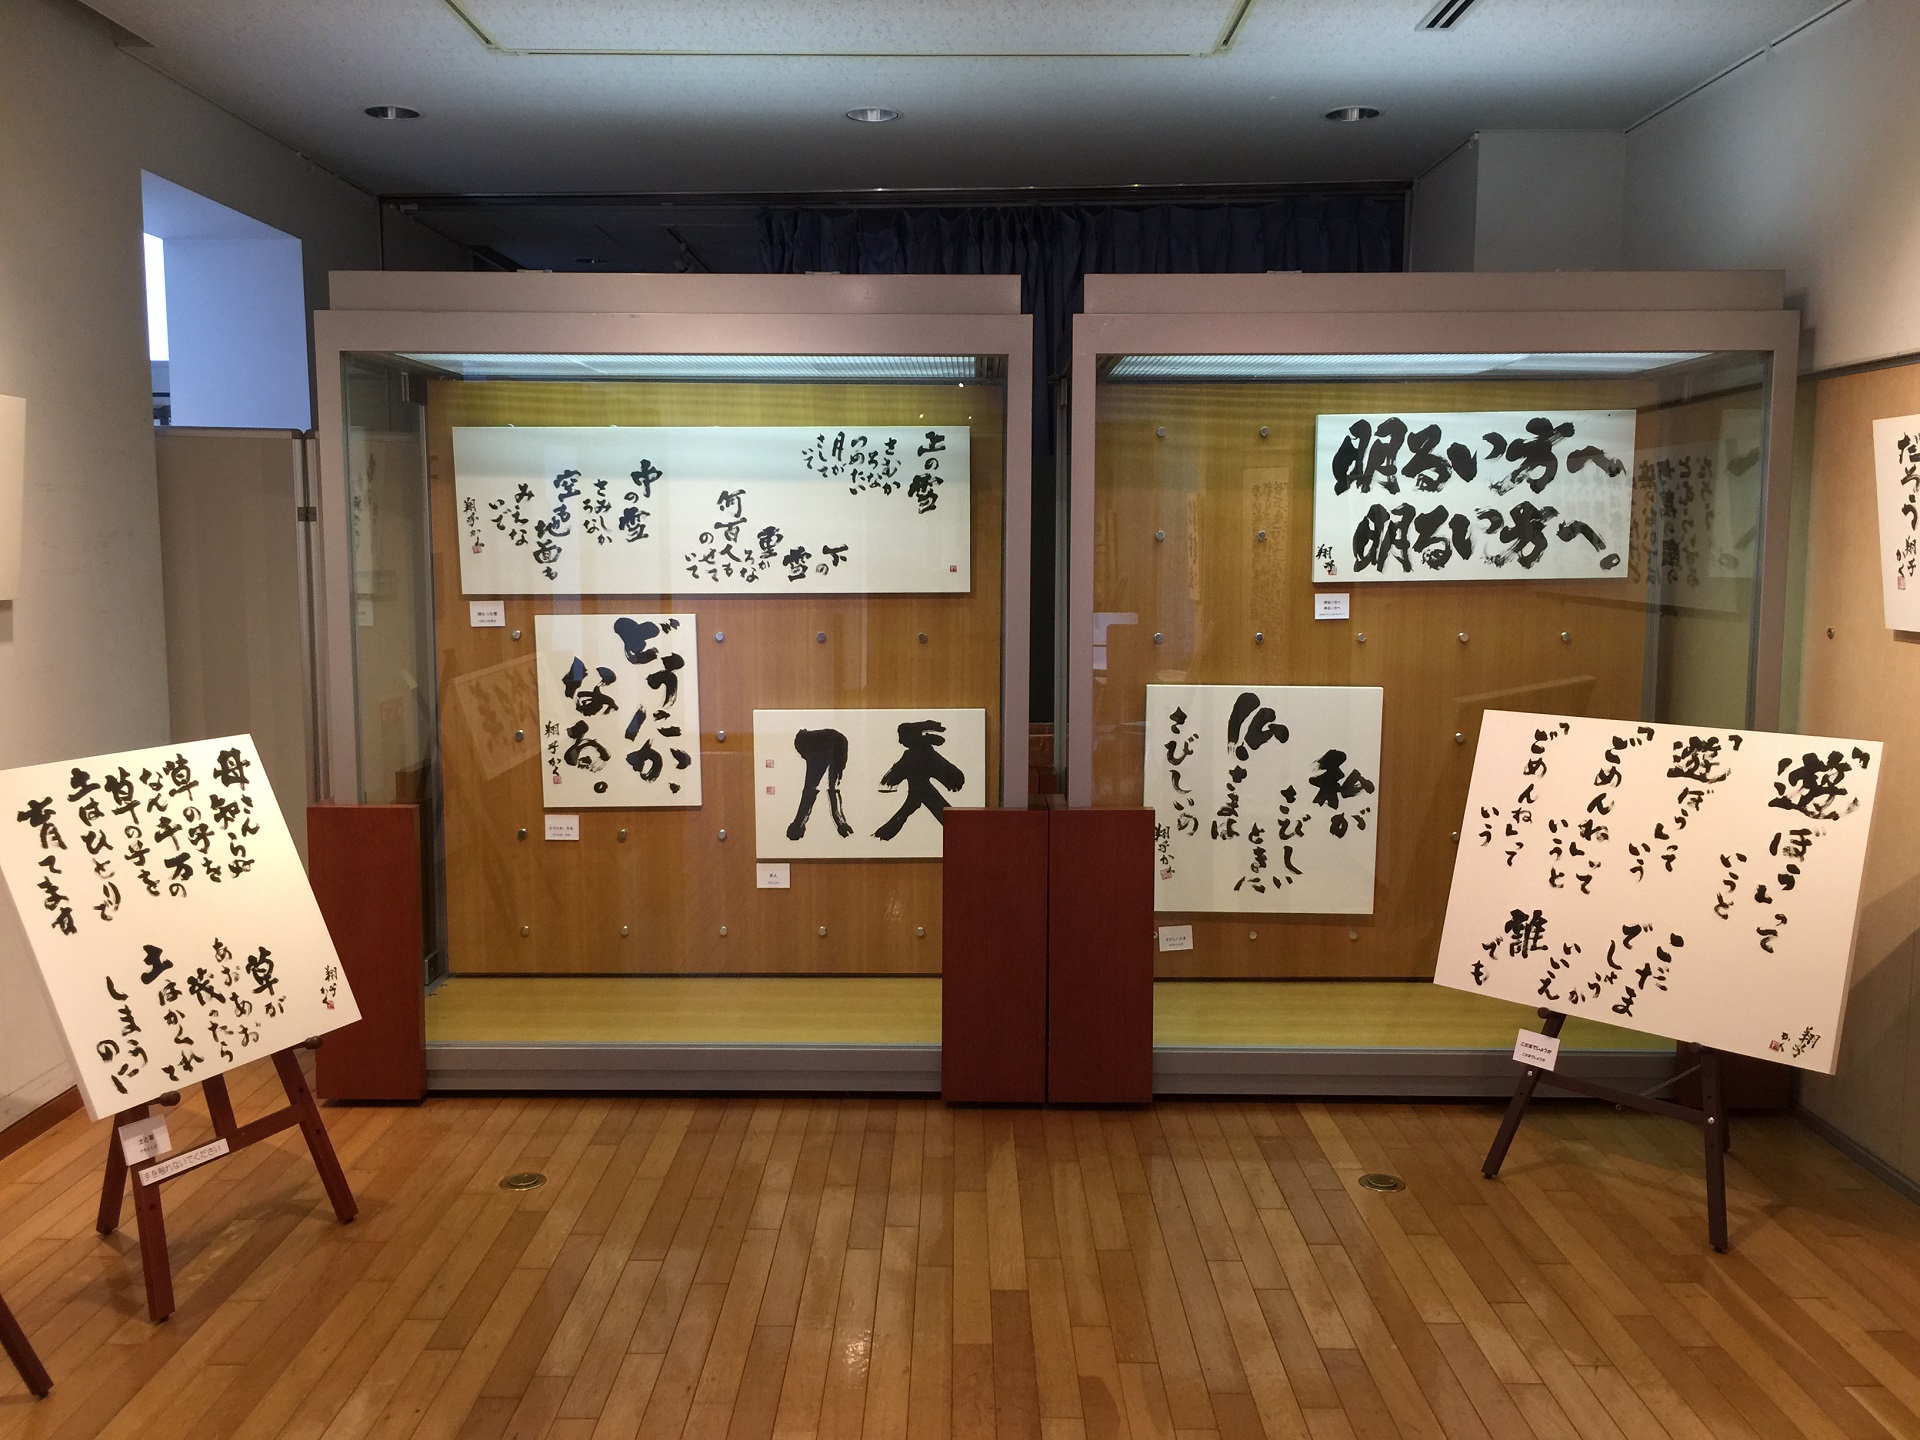 母さん知らぬ
草の子を
なん千万の
草の子を
土はひとりで
育てます
草が
あおあお
茂ったら
土はかくれて
しまうのに
翔子かく
土と草
手を触れないでください
上の雪
さむかろな
つめたい
月が
さしていて
下の雪
重かろな
何百人も
のせていて
中の雪
さみしかろな
空も地面も
みえないで
翔子かく
積もった雪
どうにか、
なる。
翔子かく
どうにか、なる
天
明るい方へ
明るい方へ。
翔子
明るい方へ
明るい方へ
私が
さびしい
ときに
仏さまは
さびしいの
翔子かく
さびしいとき
「遊ぼう」って
いうと
「遊ぼう」って
いう
「ごめんね」って
いうと
「ごめんね」って
いう
こだま
でしょうか
いいえ
誰でも
翔子かく
こだまでしょうか
だろう
翔子かく